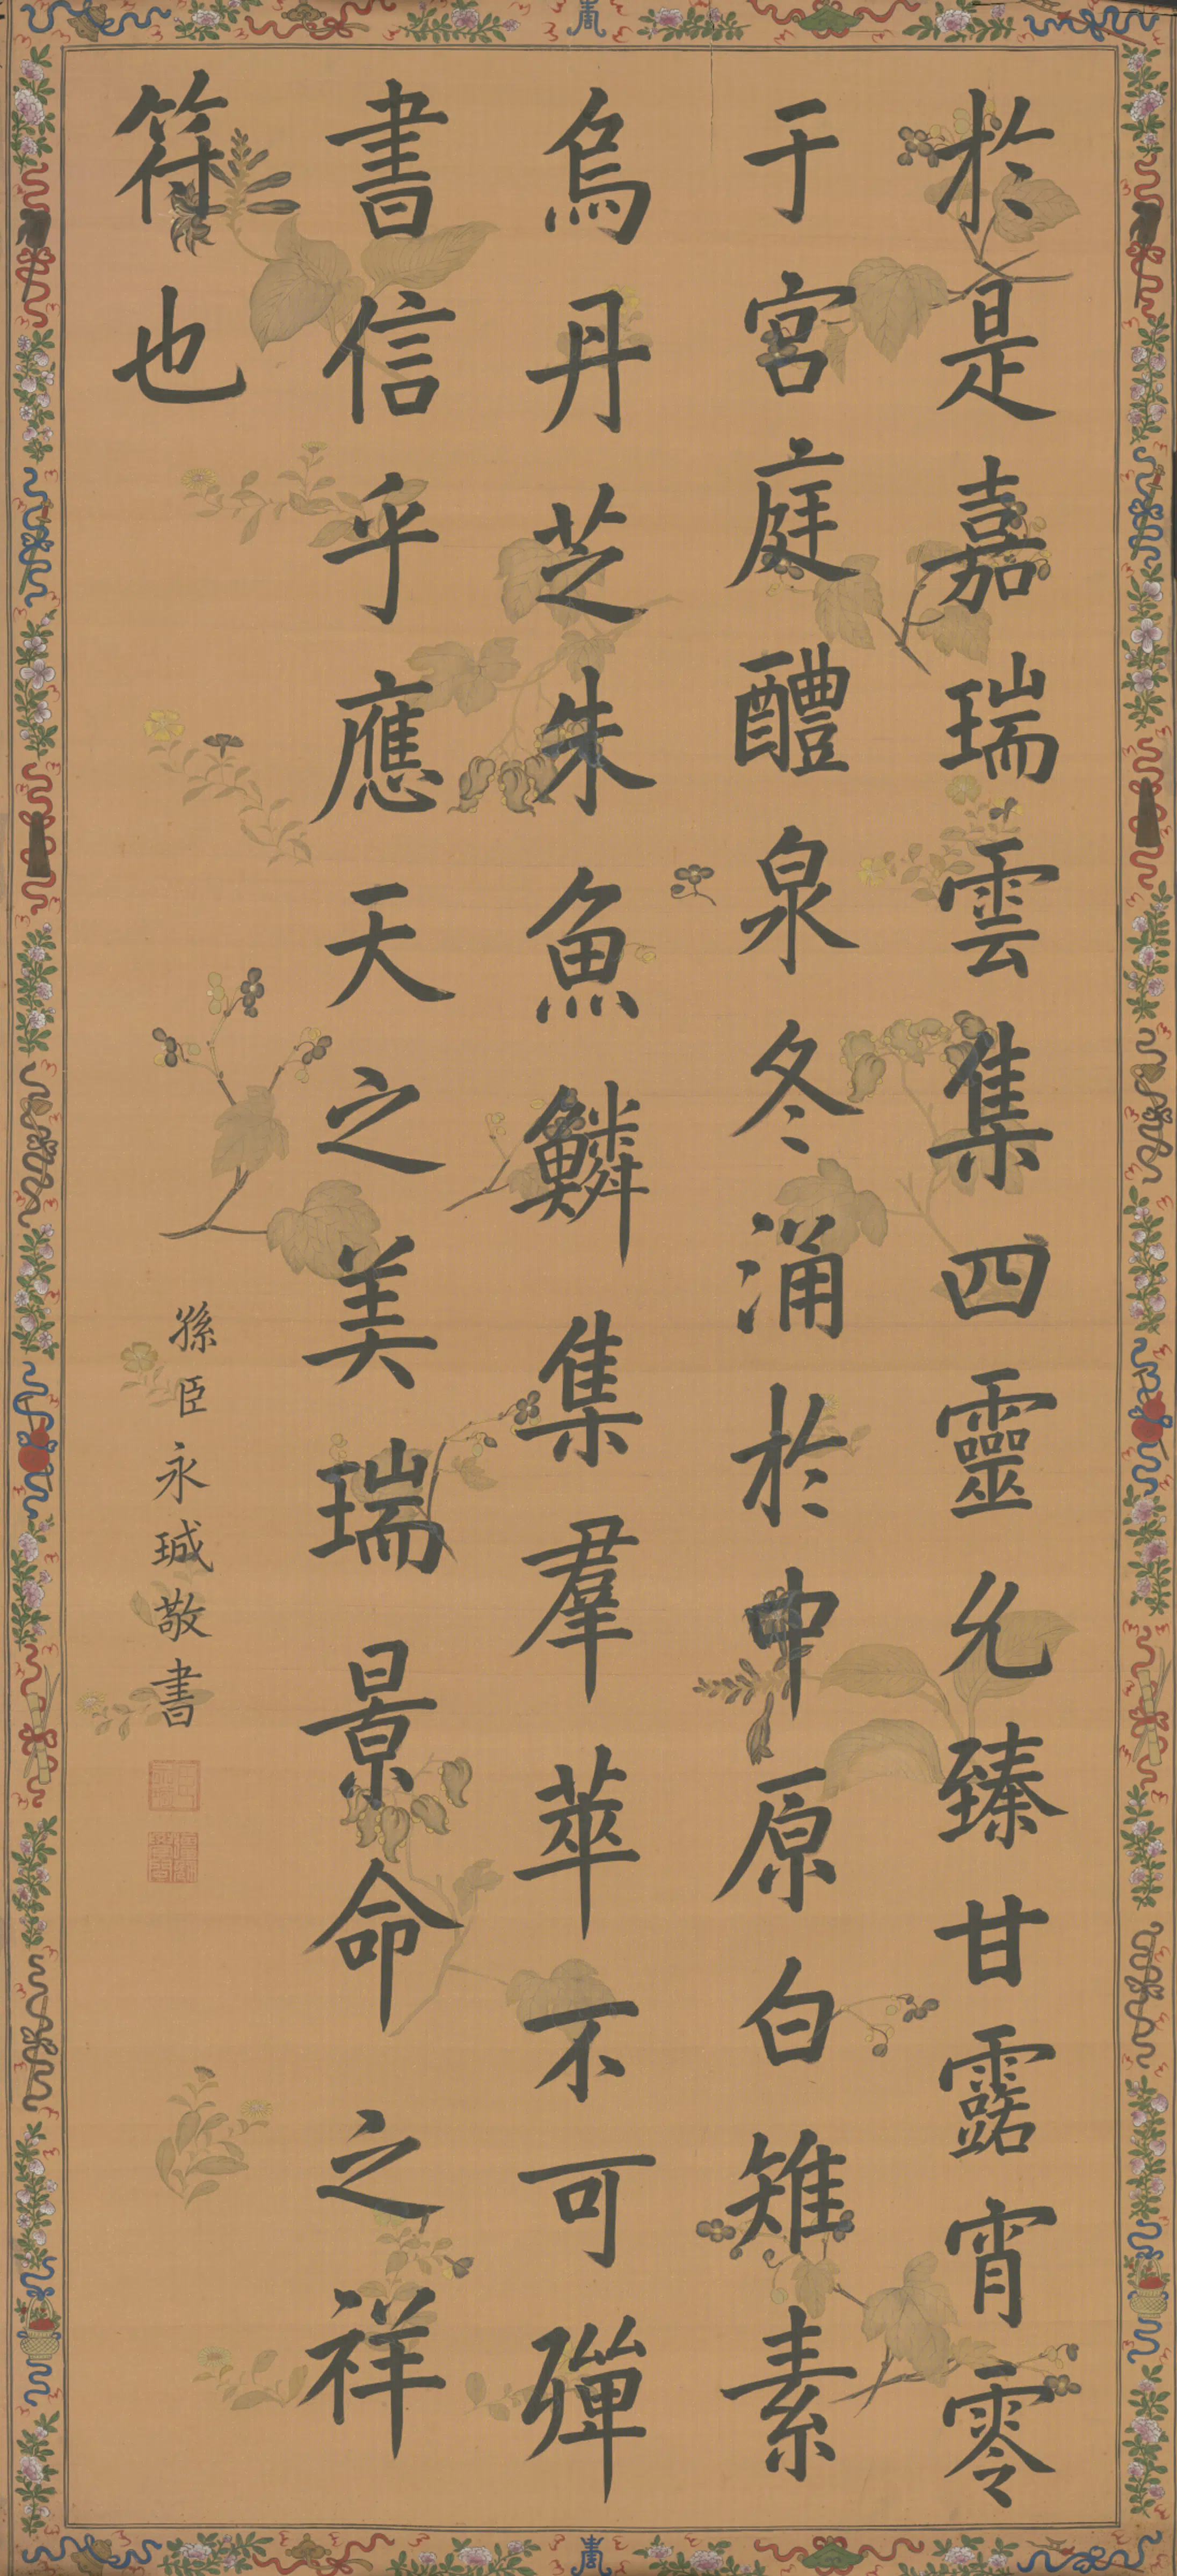 於是嘉瑞雲集四靈允臻甘露宵零
于宮庭醴泉冬涌於中原白雉素
烏丹芝朱魚鱗集羣萃不可殫
書信乎應天之美瑞景命之祥
符也
孫臣永珹敬書